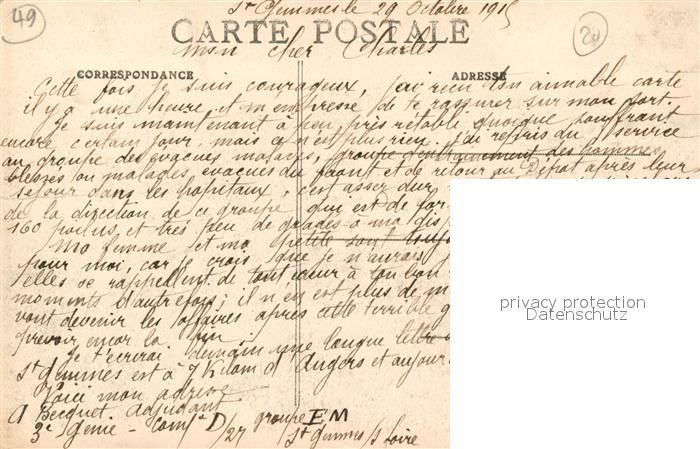 49
St Gemmes le 29 Octobre 1915
CARTE POSTALE
20
mon cher Charles
CORRESPONDANCE
ADRESSE
Cette fois je suis courageux, j'ai reçu ton aimable carte
il y a une heure, et m'empresse de te rassurer sur mon sort.
Je suis maintenant à peu près rétabli quoique souffrant
encore certain jour, mais ça n'est plus rien. j'ai repris du service
au groupe des évacués malades, groupe d'entrainement des hommes
blessés ou malades, évacués du front et de retour au Dépot après leur
sejour dans les hopitaux, c'est assez dur
de la direction de ce groupe qui est de
160 poilus, et très peu de gradés à ma dis
Ma femme et ma petite sont
pour moi, car je crois que je n'aurais
elles se rappellent de tout cœur à ton bon
moments d'autrefois; il n'en est plus de m
vont devenir les affaires après cette terrible g
prévoir encor la fin
Je t'écrirai demain une longue lettre
St Gemmes est à 7 Kilom d'Angers et aujour
Voici mon adresse
A Becquet adjudant
3e Génie - Comp D/27 groupe EM
St Gemmes s/Loire
privacy protection
Datenschutz